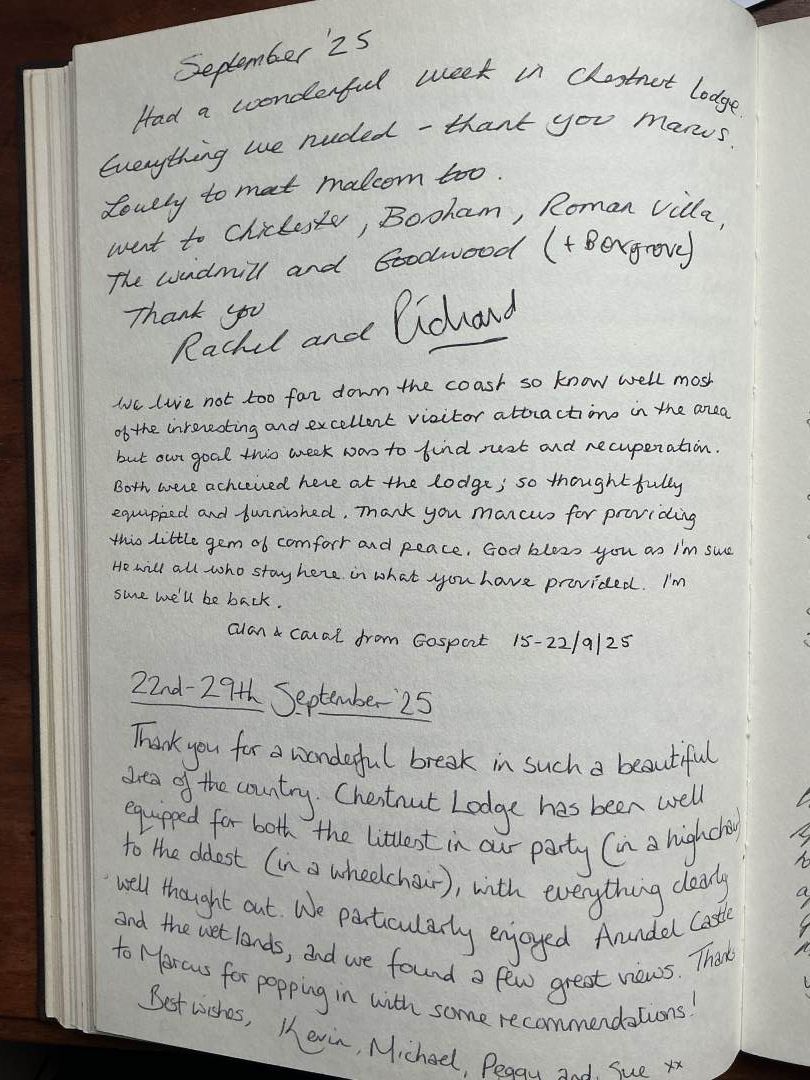 September '25
Had a wonderful week in Chestnut Lodge.
Everything we needed - thank you Marcus.
Lovely to meet Malcom too.
went to Chichester, Bosham, Roman Villa,
The windmill and Goodwood (+ Boxgrove)
Thank you
Rachel and Richard
We live not too far down the coast so know well most
of the interesting and excellent visitor attractions in the area
but our goal this week was to find rest and recuperation.
Both were achieved here at the lodge; so thoughtfully
equipped and furnished. Thank you Marcus for providing
this little gem of comfort and peace. God bless you as I'm sure
He will all who stay here in what you have provided. I'm
sure we'll be back.
Alan & Carol from Gosport 15-22/9/25
22nd-29th September '25
Thank you for a wonderful break in such a beautiful
area of the country. Chestnut Lodge has been well
equipped for both the littlest in our party (in a highchair)
to the oldest (in a wheelchair), with everything clearly
well thought out. We particularly enjoyed Arundel Castle
and the wetlands, and we found a few great views. Thanks
to Marcus for popping in with some recommendations!
Best wishes, Kevin, Michael, Peggy and Sue xx